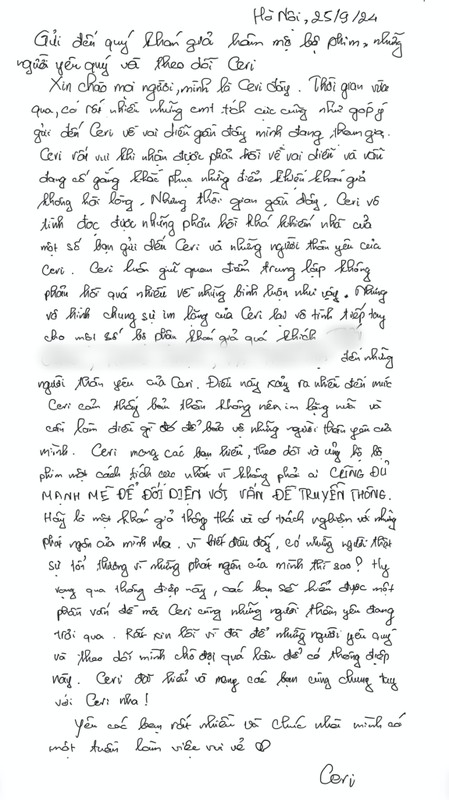 Hà Nội, 25/9/24
Gửi đến quý khán giả hâm mộ bộ phim, những
người yêu quý và theo dõi Ceri
Xin chào mọi người, mình là Ceri đây. Thời gian vừa
qua, có rất nhiều những cmt tích cực cũng như góp ý
gửi đến Ceri về vai diễn gần đây mình đang tham gia.
Ceri rất vui khi nhận được phản hồi về vai diễn và vẫn
đang cố gắng khắc phục những điểm khiến khán giả
không hài lòng. Nhưng thời gian gần đây, Ceri vô
tình đọc được những phản hồi khá khiếm nhã của
một số bạn gửi đến Ceri và những người thân yêu của
Ceri. Ceri luôn giữ quan điểm trung lập không
phản hồi quá nhiều về những bình luận như vậy. Nhưng
vô hình chung sự im lặng của Ceri lại vô tình tiếp tay
cho một số bộ phận khán giả quá khích
đến những
người thân yêu của Ceri. Điều này xảy ra nhiều đến mức
Ceri cảm thấy bản thân không nên im lặng nữa và
cần làm điều gì đó để bảo vệ những người thân yêu của
mình. Ceri mong các bạn hiểu, theo dõi và ủng hộ bộ
phim một cách tích cực nhất vì không phải ai CŨNG ĐỦ
MẠNH MẼ ĐỂ ĐỐI DIỆN VỚI VẤN ĐỀ TRUYỀN THÔNG.
Hãy là một khán giả thông thái và có trách nghiệm với những
phát ngôn của mình nha. Vì biết đâu đấy, có những người thật
sự tổn thương vì những phát ngôn của mình thì sao? Hy
vọng qua thông điệp này, các bạn sẽ hiểu được một
phần vấn đề mà Ceri cùng những người thân yêu đang
trải qua. Rất xin lỗi vì đã để những người yêu quý
và theo dõi mình chờ đợi quá lâu để có thông điệp
này. Ceri đã hiểu và mong các bạn cùng chung tay
với Ceri nha!
Yêu các bạn rất nhiều và chúc nhà mình có
một tuần làm việc vui vẻ ♡
Ceri